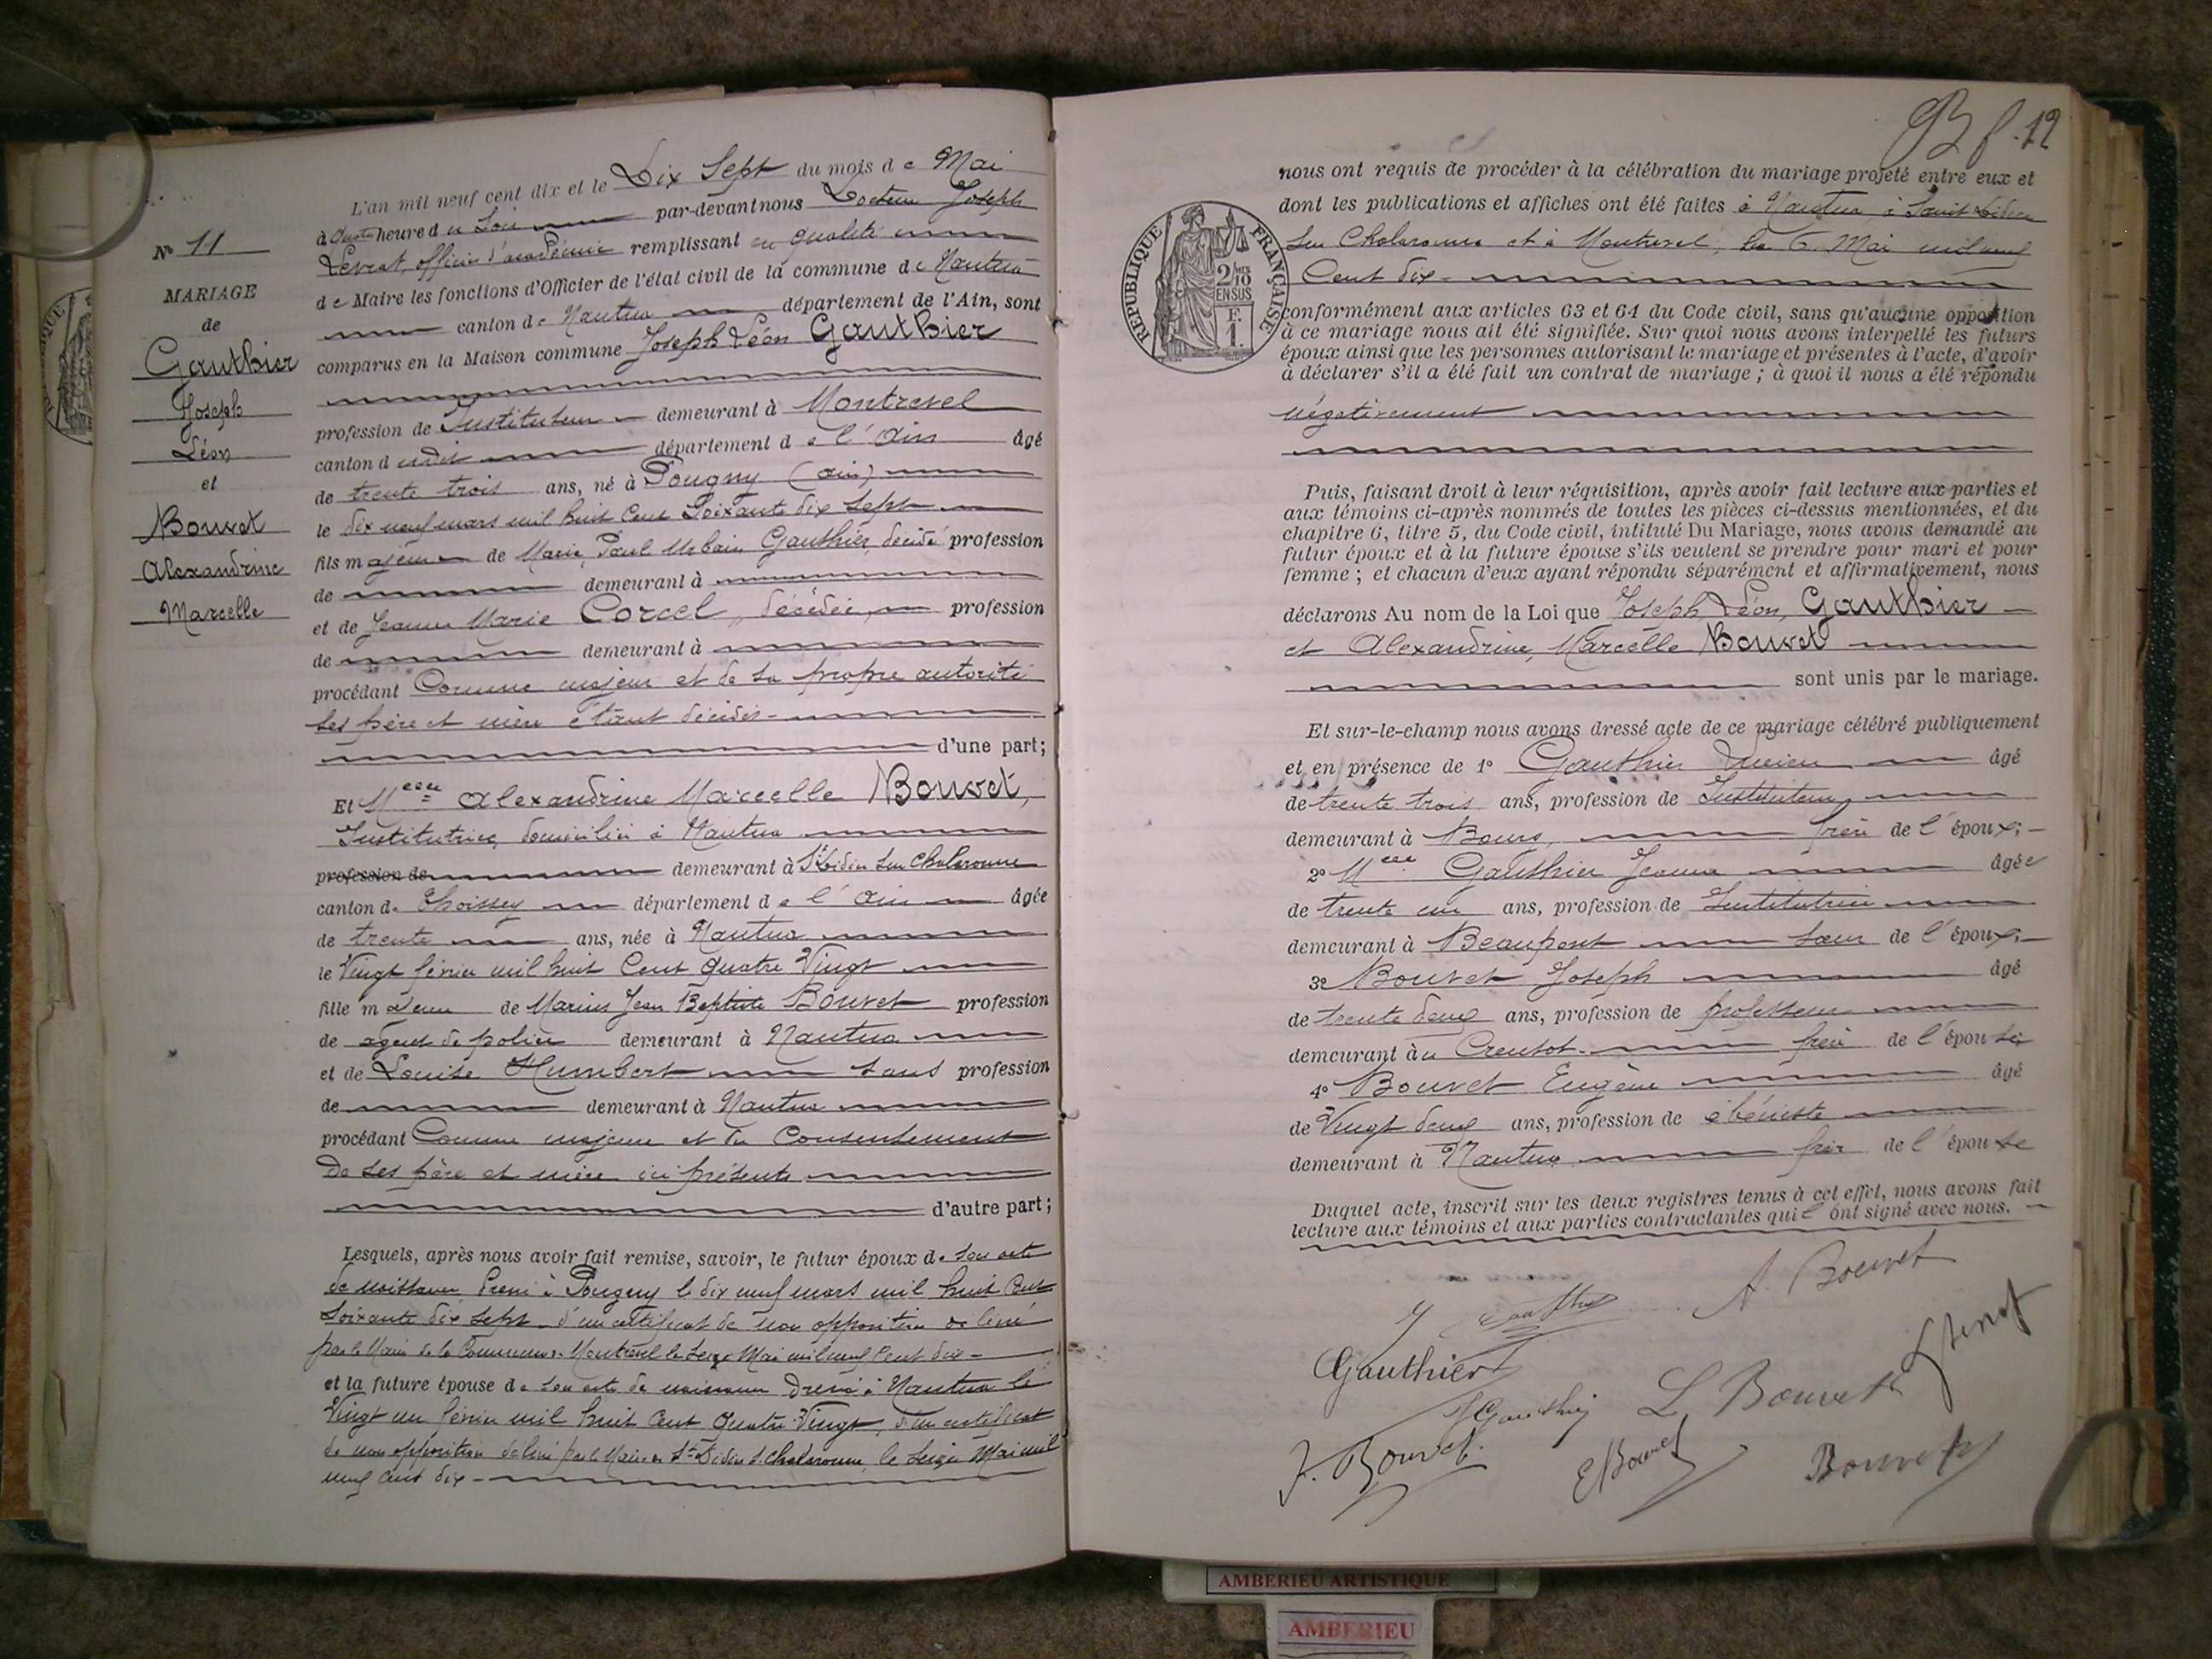 N° 11
MARIAGE
de
Gauthier
Joseph
Léon
et
Bouvet
Alexandrine
Marcelle
L'an mil neuf cent dix et le Dix Sept du mois de Mai
à heure du Soir par-devant nous Docteur Joseph
Levrat, officier d'académie remplissant en qualité
de Maire les fonctions d'Officier de l'état civil de la commune de Nantua
canton de Nantua département de l'Ain, sont
comparus en la Maison commune Joseph Léon Gauthier
profession de Instituteur demeurant à Montrevel
canton dudit département de l'Ain âgé
de trente trois ans, né à Pougny (Ain)
le dix neuf mars mil huit Cent Soixante dix Sept
fils majeur de Marie Paul Urbain Gauthier, décédé profession
de demeurant à
et de Jeanne Marie Corcel, décédée, profession
de demeurant à
procédant Comme majeur et de sa propre autorité
ses père et mère étant décédés
d'une part;
Et Melle Alexandrine Marcelle Bouvet,
Institutrice, domiciliée à Nantua
profession de demeurant à St Didier sur Chalaronne
canton de Thoissey département de l'Ain âgée
de trente ans, née à Nantua
le Vingt février mil huit Cent quatre Vingt
fille majeure de Marius Jean Baptiste Bouvet profession
de agent de police demeurant à Nantua
et de Louise Humbert sans profession
de demeurant à Nantua
procédant Comme majeure et du Consentement
De ses père et mère ici présents
d'autre part;
Lesquels, après nous avoir fait remise, savoir, le futur époux de son acte
de naissance à Pougny le dix neuf mars mil huit Cent
Soixante dix Sept d'un certificat de non opposition délivré
par le Maire de la Commune de Montrevel le seize Mai mil neuf Cent dix
et la future épouse de son acte de naissance à Nantua le
Vingt un février mil huit Cent quatre Vingt, d'un certificat
de non opposition délivré par le Maire de St-Didier s. chalaronne, le seize Mai mil
neuf cent dix
B f. 12
nous ont requis de procéder à la célébration du mariage projeté entre eux et
dont les publications et affiches ont été faites à Nantua, à Saint Didier
sur Chalaronne et à Montrevel, le Mai mil neuf
Cent dix
REPUBLIQUE FRANÇAISE
2/10 EN SUS
F. 1.
conformément aux articles 63 et 64 du Code civil, sans qu'aucune opposition
à ce mariage nous ait été signifiée. Sur quoi nous avons interpellé les futurs
époux ainsi que les personnes autorisant le mariage et présentes à l'acte, d'avoir
à déclarer s'il a été fait un contrat de mariage ; à quoi il nous a été répondu
négativement
Puis, faisant droit à leur réquisition, après avoir fait lecture aux parties et
aux témoins ci-après nommés de toutes les pièces ci-dessus mentionnées, et du
chapitre 6, titre 5, du Code civil, intitulé Du Mariage, nous avons demandé au
futur époux et à la future épouse s'ils veulent se prendre pour mari et pour
femme ; et chacun d'eux ayant répondu séparément et affirmativement, nous
déclarons Au nom de la Loi que Joseph Léon, Gauthier
et Alexandrine, Marcelle Bouvet
sont unis par le mariage.
Et sur-le-champ nous avons dressé acte de ce mariage célébré publiquement
et en présence de 1° Gauthier âgé
de trente trois ans, profession de Instituteur,
demeurant à Bourg, frère de l'époux;
2° Melle Gauthier Jeanne âgée
de trente un ans, profession de Institutrice
demeurant à Beaupont sœur de l'époux;
3° Bouvet Joseph âgé
de trente deux ans, profession de professeur
demeurant au Creusot. frère de l'épouse
4° Bouvet Eugène âgé
de Vingt deux ans, profession de ébéniste
demeurant à Nantua frère de l'épouse
Duquel acte, inscrit sur les deux registres tenus à cet effet, nous avons fait
lecture aux témoins et aux parties contractantes qui ont signé avec nous.
A. Bouvet
J Gauthier
Gauthier
J Gauthier
L Bouvet
J. Bouvet
E Bouvet
Bouvet
AMBERIEU ARTISTIQUE
AMBERIEU